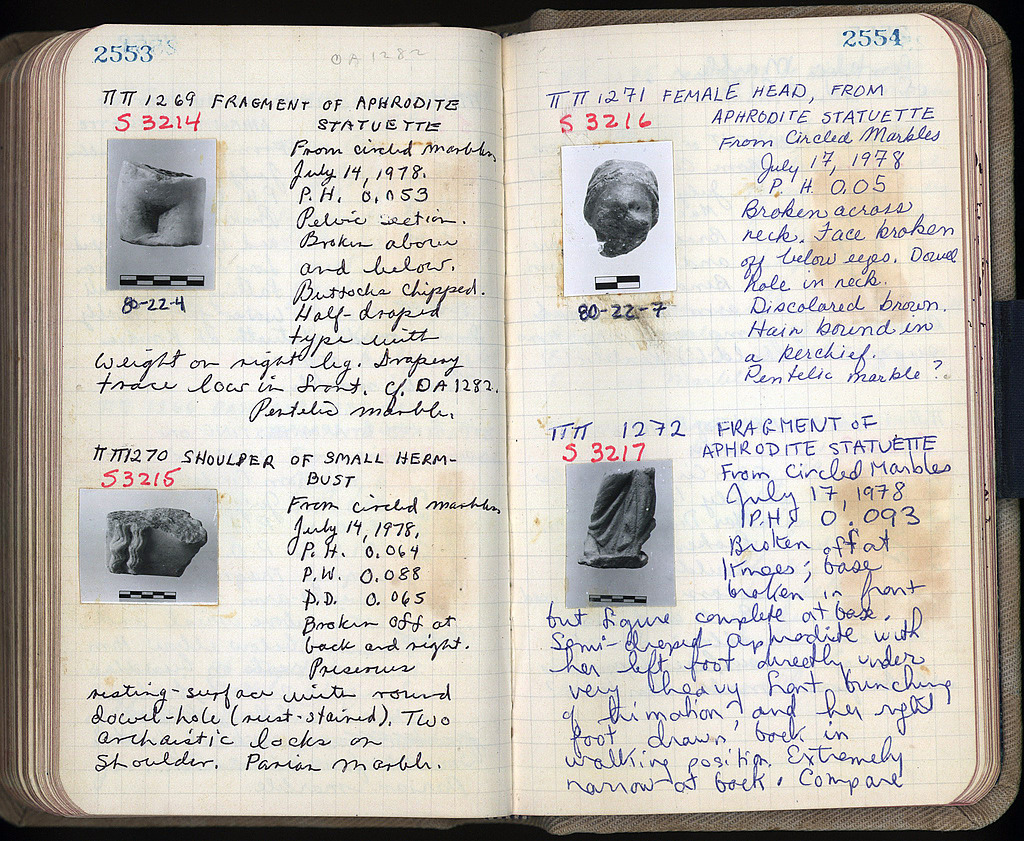 2553
OA 1282
ΠΠ 1269 FRAGMENT OF APHRODITE
S 3214 STATUETTE
From circled marbles
July 14, 1978.
P.H. 0.053
Pelvic section.
Broken above
and below.
Buttocks chipped.
80-22-4
Half-draped
type with
weight on right leg. Drapery
trace low in front. cf. OA 1282.
Pentelic marble.
ΠΠ 1270 SHOULDER OF SMALL HERM-
S 3215 BUST
From circled marbles
July 14, 1978.
P.H. 0.064
P.W. 0.088
P.D. 0.065
Broken off at
back and right.
Preserves
resting-surface with round
dowel-hole (rust-stained). Two
archaistic locks on
shoulder. Parian marble.
2554
ΠΠ 1271 FEMALE HEAD, FROM
S 3216 APHRODITE STATUETTE
From Circled Marbles
July 17, 1978
P. H. 0.05
Broken across
neck. Face broken
off below eyes. Dowel
hole in neck.
80-22-7
Discolored brown.
Hair bound in
a kerchief.
Pentelic marble?
ΠΠ 1272 FRAGMENT OF
S 3217 APHRODITE STATUETTE
From Circled Marbles
July 17, 1978
P.H. 0.093
Broken off at
knees; base
broken in front
but figure complete at base.
Semi-draped Aphrodite with
her left foot directly under
very heavy front bunching
of himation, and her right
foot drawn back in
walking position. Extremely
narrow at back. Compare